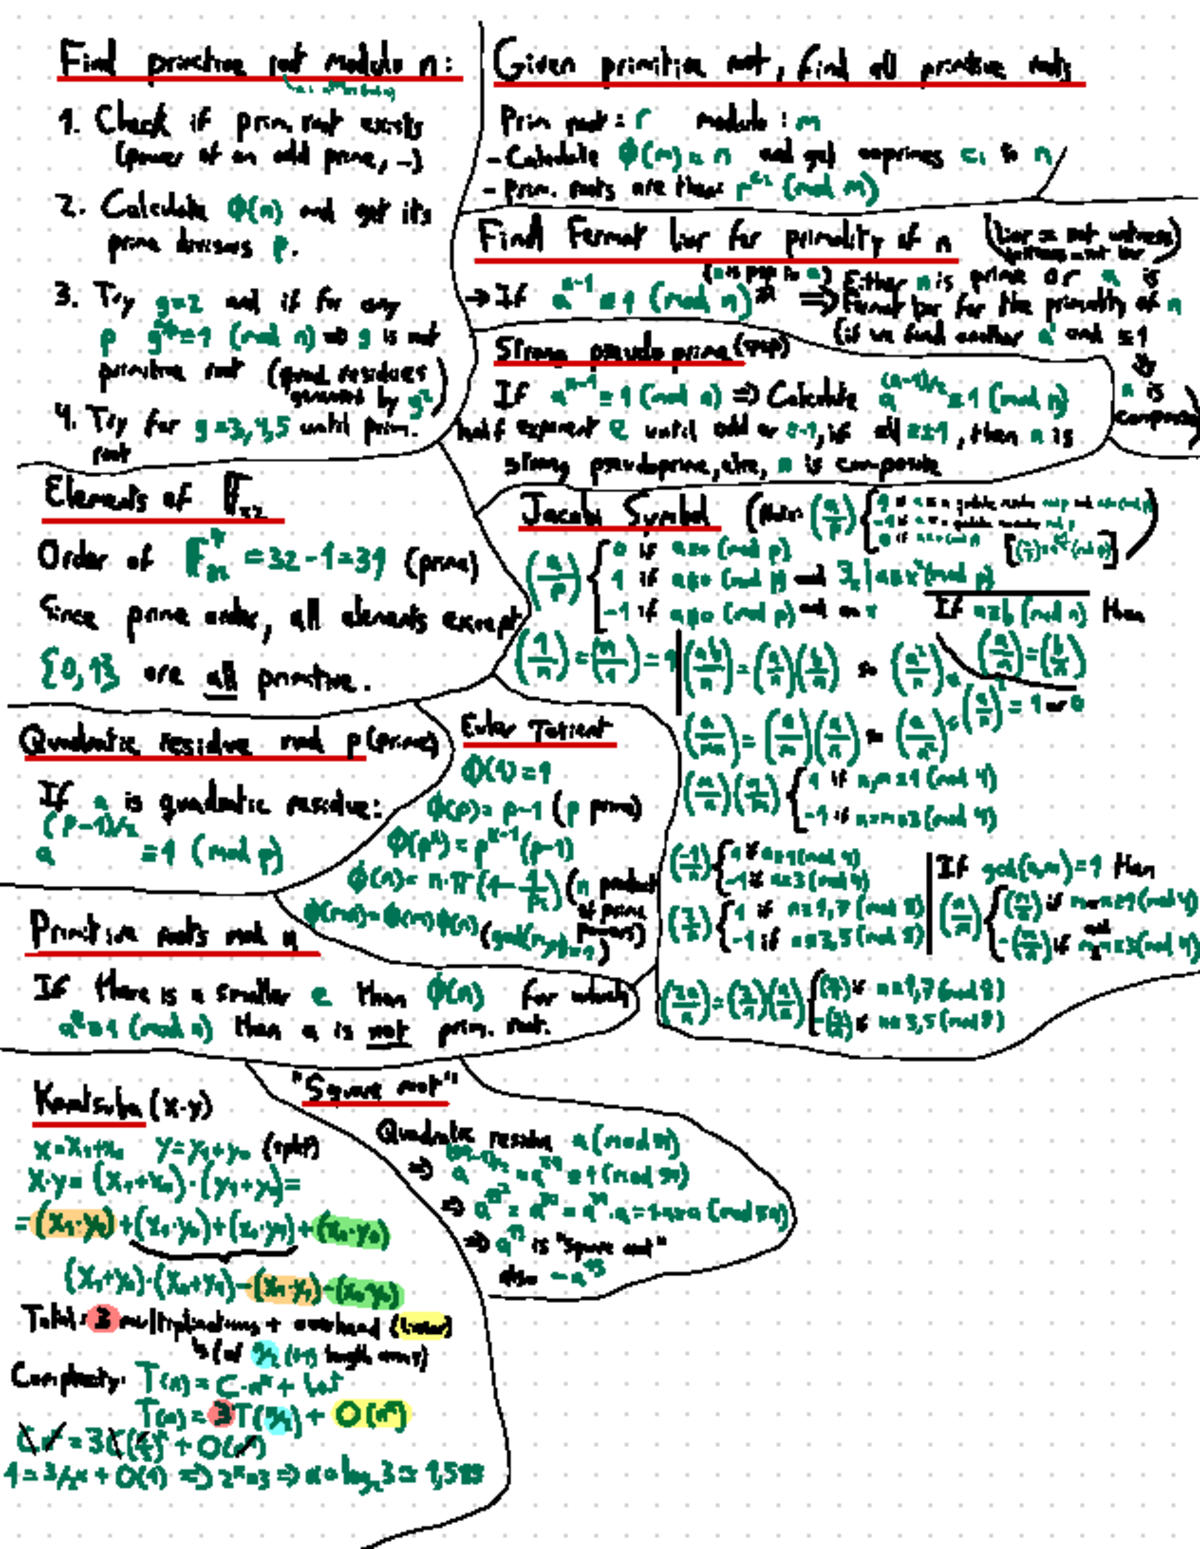 Find primitive root modulo n:
1. Check if prim. root exists
(power of an odd prime, ...)
2. Calculate Φ(n) and get its
prime divisors p.
3. Try g=2 and if for any
p g =1 (mod n) => g is not
primitive root (quad. residues
generated by g²)
4. Try for g=3,4,5 until prim.
root
Given primitive root, find all primitive roots
Prim root = r modulo : m
- Calculate Φ(m) = n and get coprimes c_i to n
- Prim. roots are then: r^{c_i} (mod m)
Find Fermat liar for primality of n (liar = not witness)
→ If a^{n-1} ≡ 1 (mod n) => Either n is prime or a is
Fermat liar for the primality of n
(if we find another a and ≢ 1
=> n is
composite)
Strong pseudoprime (spsp)
If a^{n-1} ≡ 1 (mod n) => Calculate a^{(n-1)/2} ≡ 1 (mod n)
half exponent e until odd or -1, if all ≡ ±1, then n is
strong pseudoprime, else, n is composite
Elements of F_32
Order of F*_32 = 32-1=31 (prime)
Since prime order, all elements except
{0,1} are all primitive.
Jacobi Symbol
(a/p) { 0 if a≡0 (mod p)
1 if a≢0 (mod p) and ∃x | a≡x² (mod p)
-1 if a≢0 (mod p) and no x
If a≡b (mod n) then
(a/n) = (b/n)
(1/n) = (n/1) = 1
(ab/n) = (a/n)(b/n) so (a²/n) = (a/n)² = 1 or 0
(a/mn) = (a/m)(a/n) so (a/n²) =
(m/n)(n/m) { 1 if n,m≡1 (mod 4)
-1 if n≡m≡3 (mod 4)
(-1/n) { 1 if n≡1 (mod 4)
-1 if n≡3 (mod 4)
(2/n) { 1 if n≡1,7 (mod 8)
-1 if n≡3,5 (mod 8)
If gcd(n,m)=1 then
(n/m) { (m/n) if m≡1 (mod 4)
-(m/n) if m≡n≡3 (mod 4)
(2a/n) = (2/n)(a/n) { (a/n) if n≡1,7 (mod 8)
-(a/n) if n≡3,5 (mod 8)
Quadratic residue mod p (prime)
If a is quadratic residue:
a^{(p-1)/2} ≡ 1 (mod p)
Euler Totient
Φ(1) = 1
Φ(p) = p-1 (p prime)
Φ(p^k) = p^{k-1}(p-1)
Φ(n) = n·π(1-1/p_i) (n product
of prime
powers)
Φ(mn) = Φ(m)Φ(n) (gcd(m,n)=1)
Primitive roots mod n
If there is a smaller e than Φ(n) for which
a^e≡1 (mod n) then a is not prim. root.
Karatsuba (x·y)
x=x₁+x₀ y=y₁+y₀ (split)
x·y = (x₁+x₀)·(y₁+y₀)=
=(x₁·y₁)+(x₁·y₀)+(x₀·y₁)+(x₀·y₀)
(x₁+y₀)·(x₀+y₁)-(x₁·y₁)-(x₀·y₀)
Total: 3 multiplications + overhead (linear)
↳ (of n/2 length)
Complexity: T(n) = C·n^α + lot
T(n) = 3T(n/2) + O(n^α)
= 3C(n/2)^α + O(n^α)
1 = 3/2^α + O(1) => 2^α=3 => α=log₂3 ≈ 1,585
"Square root"
Quadratic residue a (mod 59)
=> a^{(59-1)/2} = a^{29} ≡ 1 (mod 59)
=> a^{15²} = a^{30} = a^{29}·a = 1·a≡a (mod 59)
=> a^{15} is "Square root"
also -a^{15}